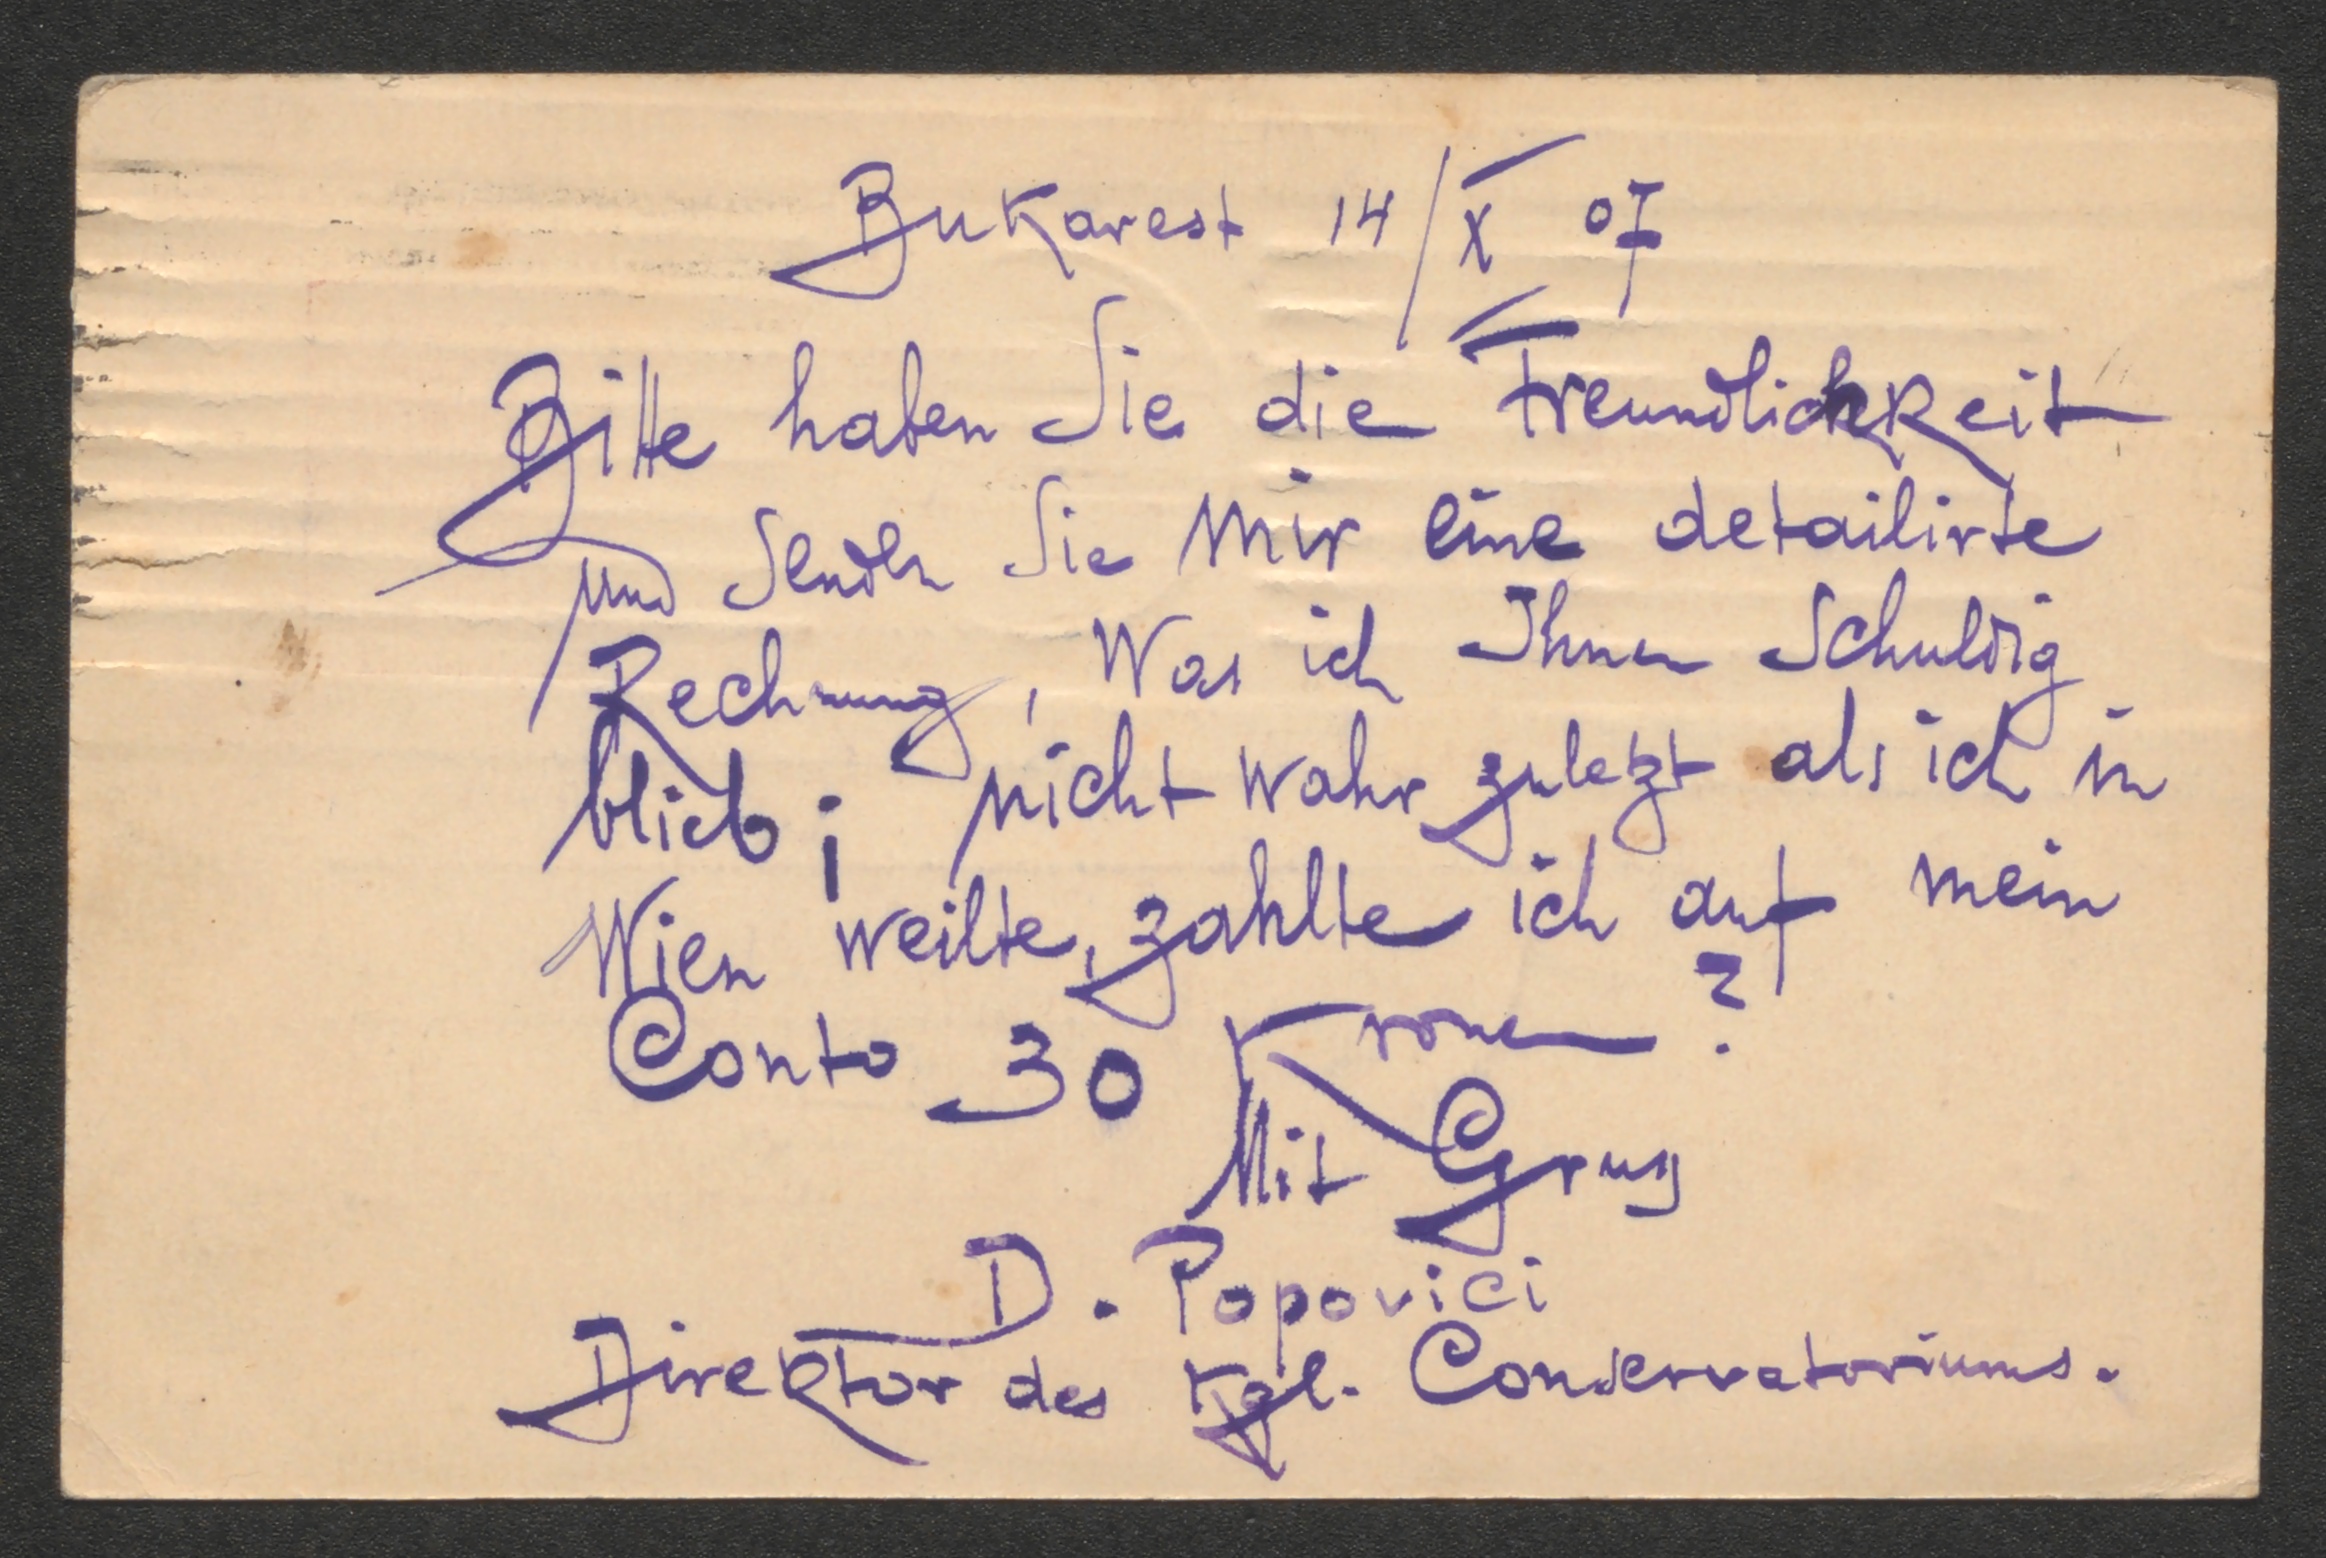 Bukarest 14/X 07
Bitte haben Sie die Freundlichkeit
und senden Sie mir eine detailirte
Rechnung, was ich Ihnen schuldig
blieb; nicht wahr zuletzt als ich in
Wien weilte, zahlte ich auf mein
Conto 30 Kronen?
Mit Gruß
D. Popovici
Direktor des Kgl. Conservatoriums.